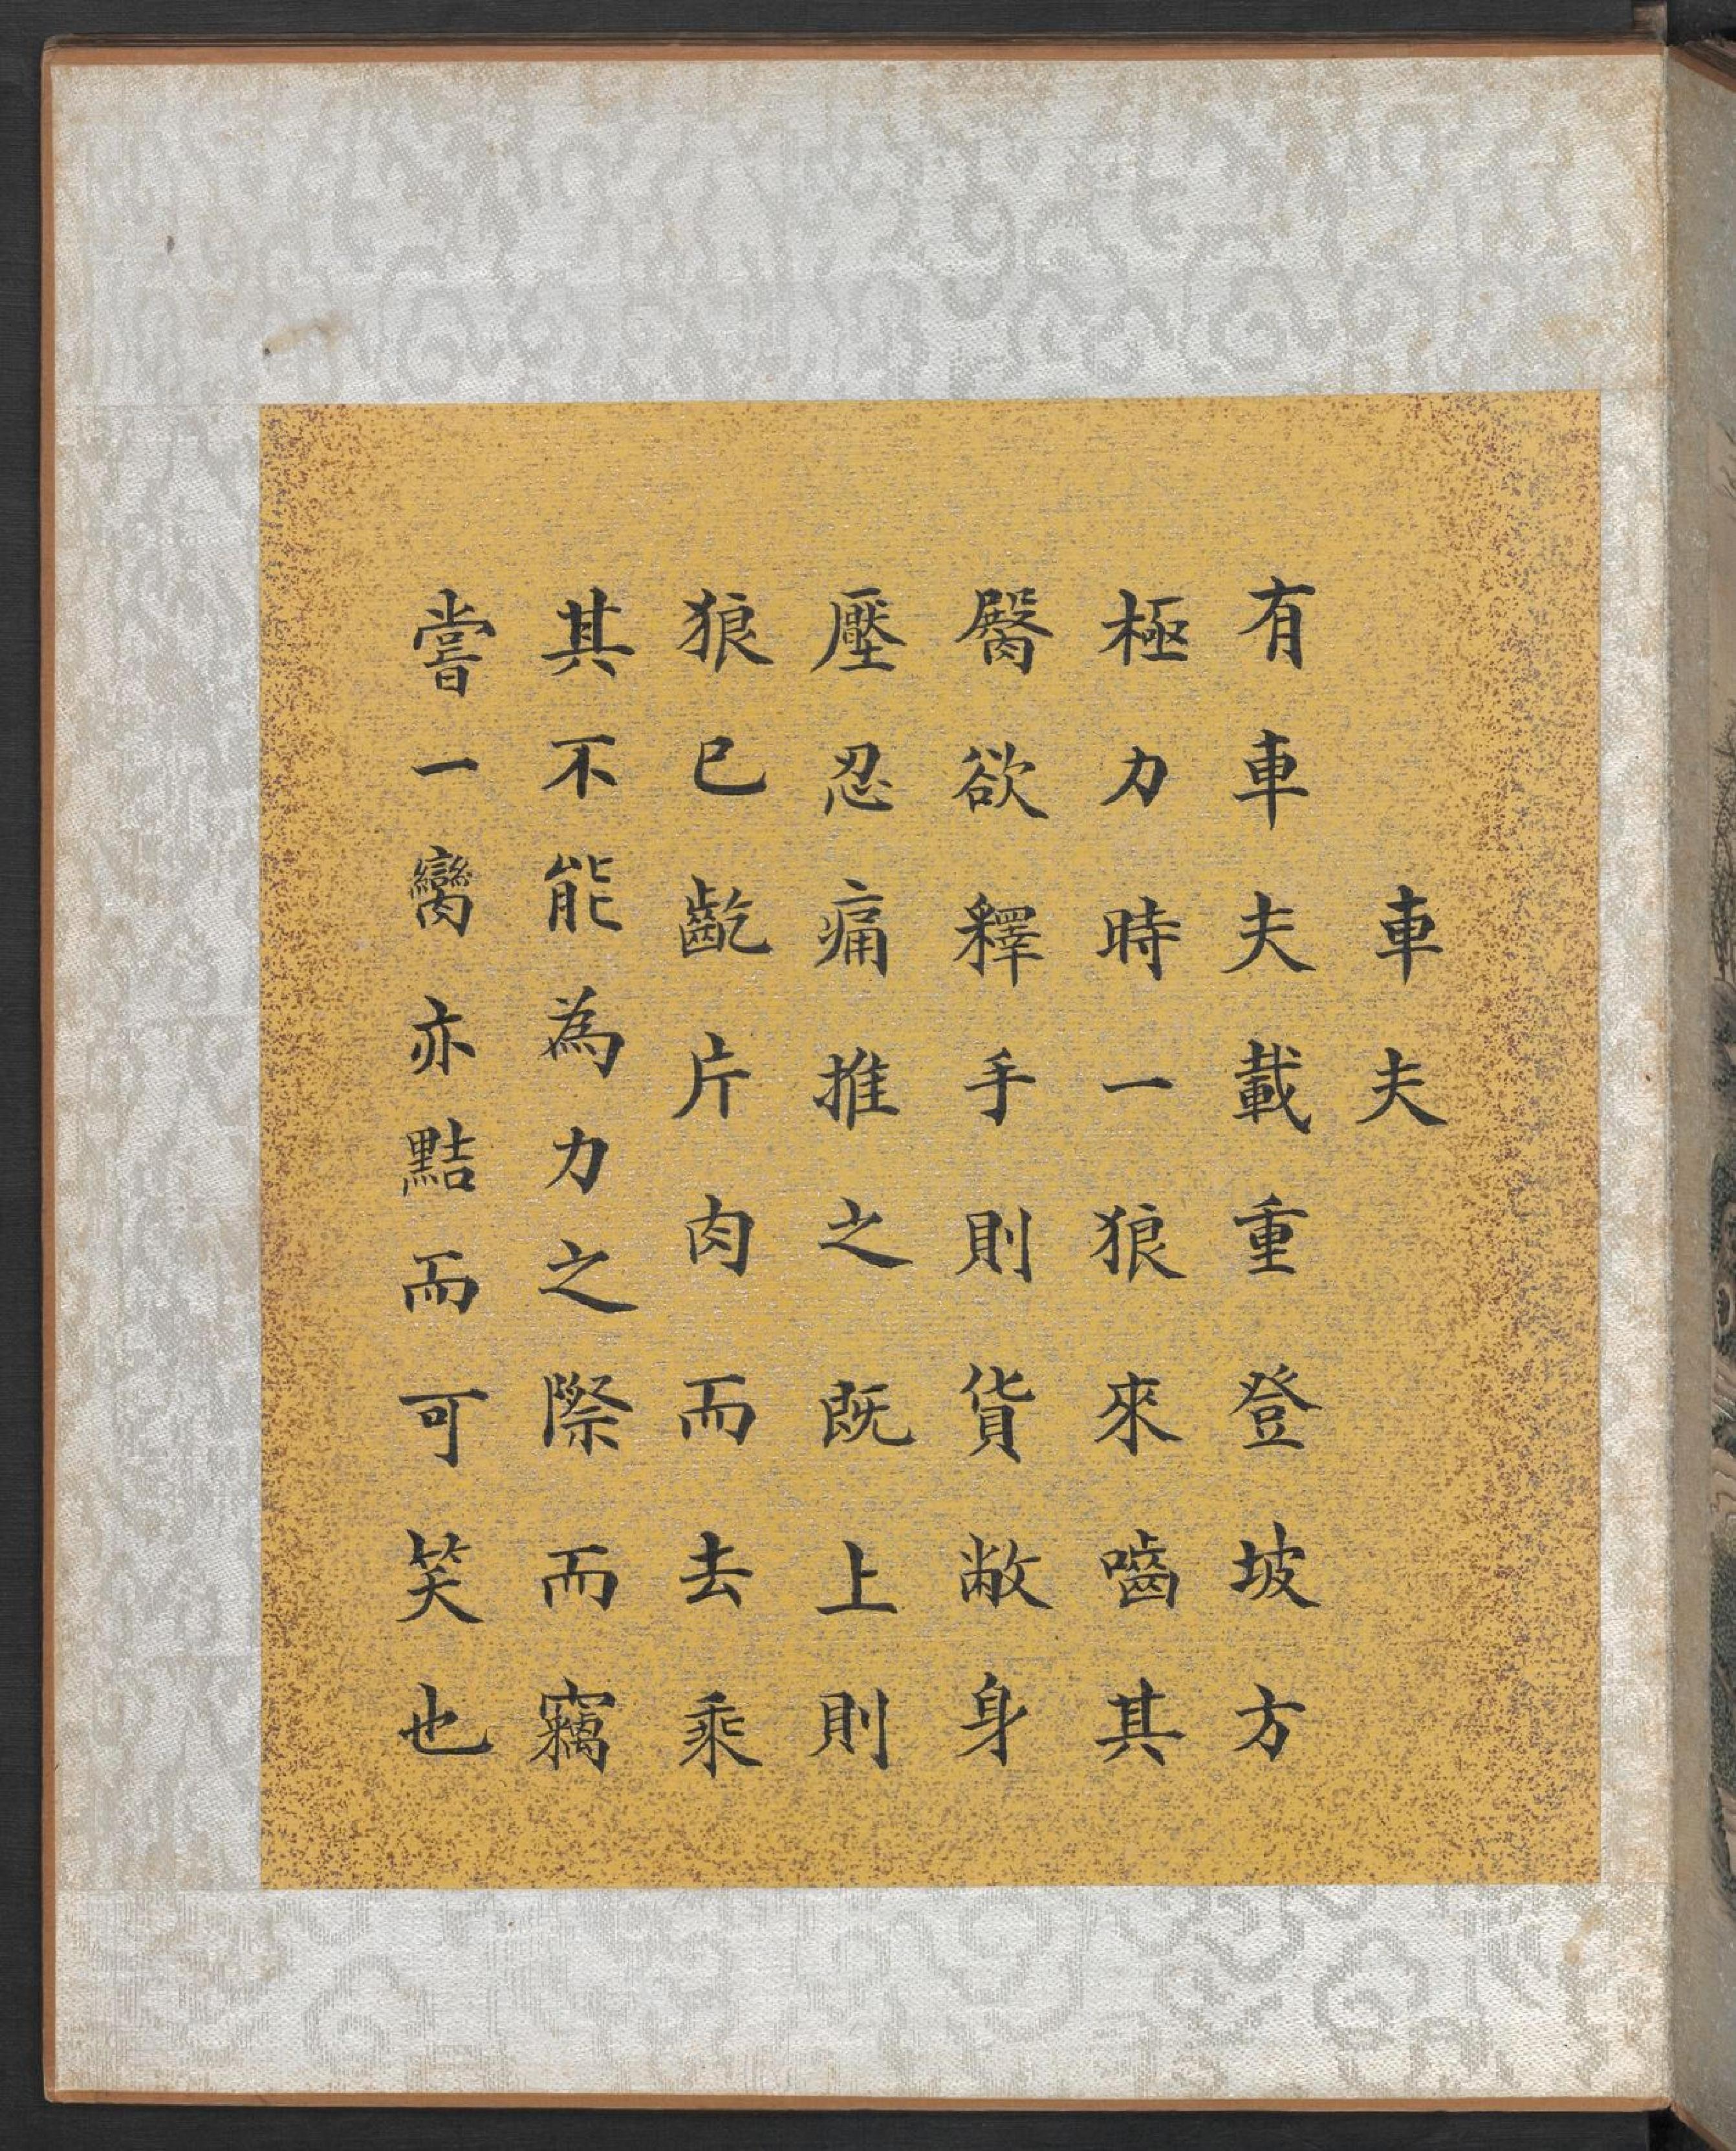 車夫
有車夫載重登坡方
極力時一狼來嚙其
臀欲釋手則貨敝身
壓忍痛推之既上則
狼已齕片肉而去乘
其不能為力之際而竊
嘗一臠亦黠而可笑也